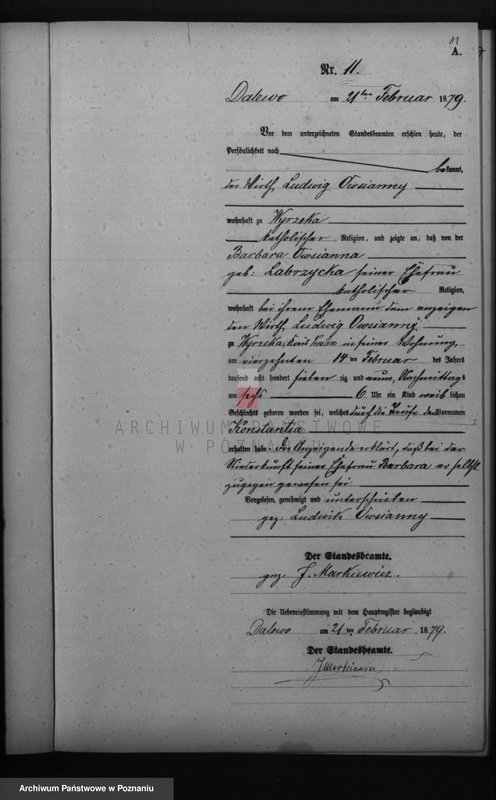 11
A.
Nr. 11.
Dalewo am 21ten Februar 1879.
Vor dem unterzeichneten Standesbeamten erschien heute, der
Persönlichkeit nach
bekannt,
der Wirth Ludwig Owsianny
wohnhaft zu Wyrzeka
katholischer Religion, und zeigte an, daß von der
Barbara Owsianna
geb: Labrzycka seiner Ehefrau
katholischer Religion,
wohnhaft bei ihrem Ehemann dem anzeigen
den Wirth Ludwig Owsianny
zu Wyrzeka, in seiner Wohnung
am vierzehnten 14 ten Februar des Jahres
tausend acht hundert sieben zig und neun, Nachmittags
um sechs 6 Uhr ein Kind weiblichen
Geschlechts geboren worden sei, welches durch die Taufe den Vornamen
Konstantia
erhalten habe. Der Anzeigende erklärt, daß bei der
Niederkunft seiner Ehefrau Barbara er selbst
zugegen gewesen sei
Vorgelesen, genehmigt und unterschrieben
gez: Ludwik Owsianny
Der Standesbeamte.
gez. J. Markiewicz.
Die Uebereinstimmung mit dem Hauptregister beglaubigt
Dalewo am 21 ten Februar 1879.
Der Standesbeamte.
J Markiewicz
ARCHIWUM PAŃSTWOWE
W POZNANIU
Archiwum Państwowe w Poznaniu